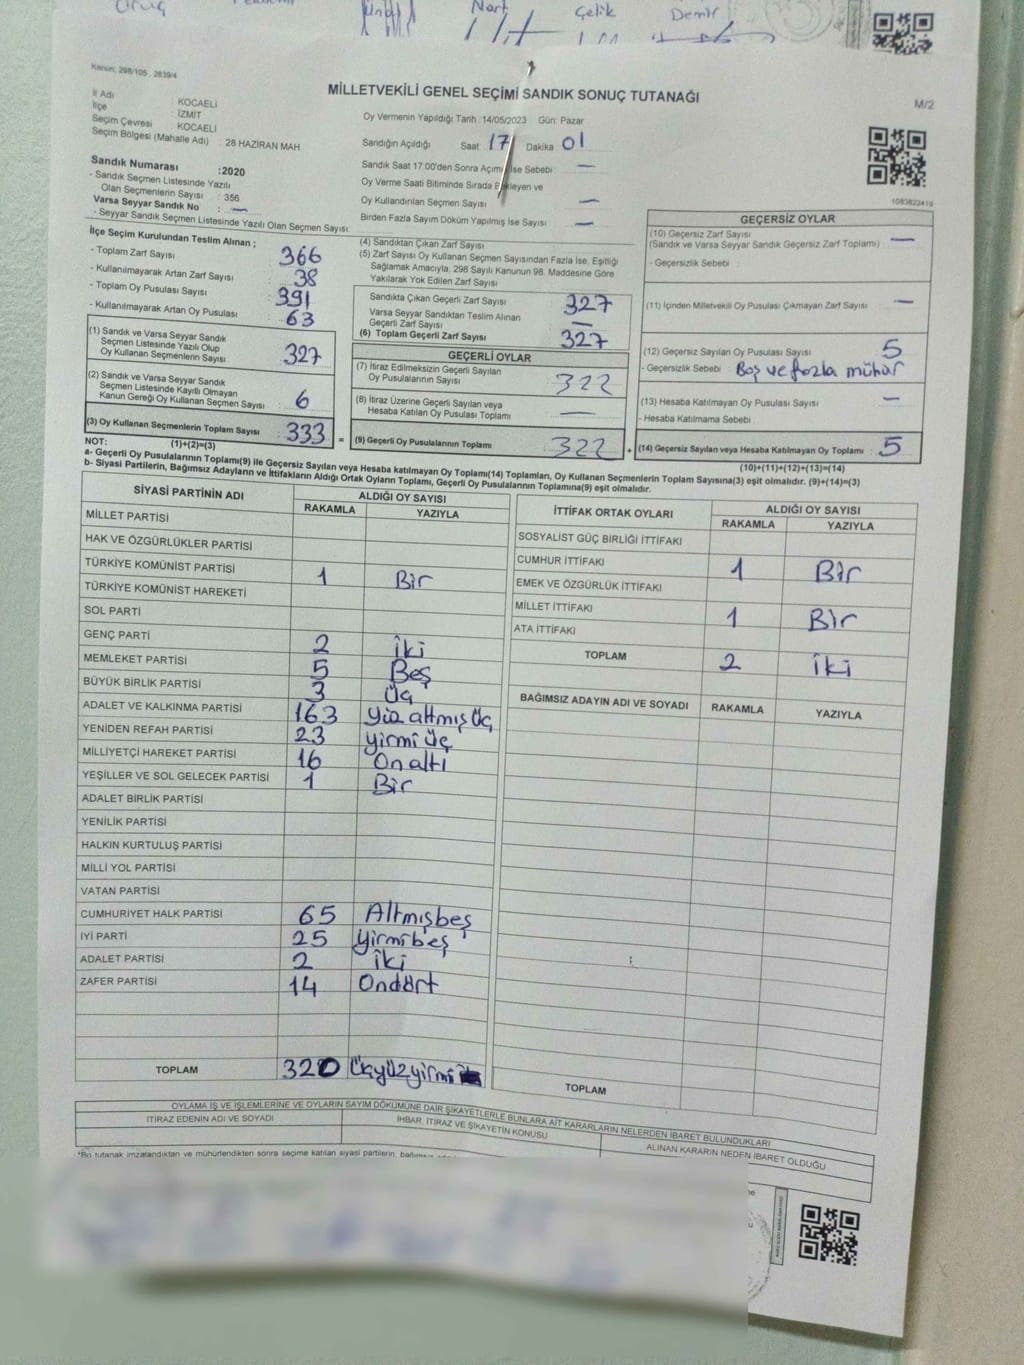 Nart
Çelik
Demir
Kanun: 298/105, 2839/4
MİLLETVEKİLİ GENEL SEÇİMİ SANDIK SONUÇ TUTANAĞI
M/2
İl Adı : KOCAELİ
İlçe : İZMİT
Seçim Çevresi : KOCAELİ
Seçim Bölgesi (Mahalle Adı) : 28 HAZİRAN MAH
Oy Vermenin Yapıldığı Tarih : 14/05/2023 Gün: Pazar
Sandığın Açıldığı Saat 17 Dakika 01
Sandık Saat 17:00'den Sonra Açılmış İse Sebebi : —
Oy Verme Saati Bitiminde Sırada Bekleyen ve
Oy Kullandırılan Seçmen Sayısı : —
Birden Fazla Sayım Döküm Yapılmış İse Sayısı : —
1083822410
Sandık Numarası :2020
- Sandık Seçmen Listesinde Yazılı
Olan Seçmenlerin Sayısı : 356
Varsa Seyyar Sandık No : —
- Seyyar Sandık Seçmen Listesinde Yazılı Olan Seçmen Sayısı:
İlçe Seçim Kurulundan Teslim Alınan ;
- Toplam Zarf Sayısı : 366
- Kullanılmayarak Artan Zarf Sayısı : 38
- Toplam Oy Pusulası Sayısı : 391
- Kullanılmayarak Artan Oy Pusulası : 63
(1) Sandık ve Varsa Seyyar Sandık
Seçmen Listesinde Yazılı Olup
Oy Kullanan Seçmenlerin Sayısı : 327
(2) Sandık ve Varsa Seyyar Sandık
Seçmen Listesinde Kayıtlı Olmayan
Kanun Gereği Oy Kullanan Seçmen Sayısı : 6
(3) Oy Kullanan Seçmenlerin Toplam Sayısı : 333 =
(1)+(2)=(3)
(4) Sandıktan Çıkan Zarf Sayısı
(5) Zarf Sayısı Oy Kullanan Seçmen Sayısından Fazla İse, Eşitliği
Sağlamak Amacıyla, 298 Sayılı Kanunun 98. Maddesine Göre
Yakılarak Yok Edilen Zarf Sayısı
Sandıkta Çıkan Geçerli Zarf Sayısı : 327
Varsa Seyyar Sandıktan Teslim Alınan
Geçerli Zarf Sayısı : —
(6) Toplam Geçerli Zarf Sayısı : 327
GEÇERLİ OYLAR
(7) İtiraz Edilmeksizin Geçerli Sayılan
Oy Pusulalarının Sayısı : 322
(8) İtiraz Üzerine Geçerli Sayılan veya
Hesaba Katılan Oy Pusulası Toplamı : —
(9) Geçerli Oy Pusulalarının Toplamı : 322 +
GEÇERSİZ OYLAR
(10) Geçersiz Zarf Sayısı
(Sandık ve Varsa Seyyar Sandık Geçersiz Zarf Toplamı) : —
- Geçersizlik Sebebi :
(11) İçinden Milletvekili Oy Pusulası Çıkmayan Zarf Sayısı : —
(12) Geçersiz Sayılan Oy Pusulası Sayısı : 5
- Geçersizlik Sebebi : Boş ve fazla mühür
(13) Hesaba Katılmayan Oy Pusulası Sayısı : —
- Hesaba Katılmama Sebebi :
(14) Geçersiz Sayılan veya Hesaba Katılmayan Oy Toplamı : 5
(10)+(11)+(12)+(13)=(14)
NOT:
a- Geçerli Oy Pusulaları Toplamı(9) ile Geçersiz Sayılan veya Hesaba katılmayan Oy Toplamı(14) Toplamları, Oy Kullanan Seçmenlerin Toplam Sayısına(3) eşit olmalıdır. (9)+(14)=(3)
b- Siyasi Partilerin, Bağımsız Adayların ve İttifakların Aldığı Ortak Oyların Toplamı, Geçerli Oy Pusulalarının Toplamına(9) eşit olmalıdır.
SİYASİ PARTİNİN ADI ALDIĞI OY SAYISI
RAKAMLA YAZIYLA
MİLLET PARTİSİ
HAK VE ÖZGÜRLÜKLER PARTİSİ
TÜRKİYE KOMÜNİST PARTİSİ 1 Bir
TÜRKİYE KOMÜNİST HAREKETİ
SOL PARTİ
GENÇ PARTİ 2 iki
MEMLEKET PARTİSİ 5 Beş
BÜYÜK BİRLİK PARTİSİ 3 Üç
ADALET VE KALKINMA PARTİSİ 163 Yüz altmış üç
YENİDEN REFAH PARTİSİ 23 yirmi üç
MİLLİYETÇİ HAREKET PARTİSİ 16 On altı
YEŞİLLER VE SOL GELECEK PARTİSİ 1 Bir
ADALET BİRLİK PARTİSİ
YENİLİK PARTİSİ
HALKIN KURTULUŞ PARTİSİ
MİLLİ YOL PARTİSİ
VATAN PARTİSİ
CUMHURİYET HALK PARTİSİ 65 Altmışbeş
İYİ PARTİ 25 Yirmibeş
ADALET PARTİSİ 2 iki
ZAFER PARTİSİ 14 Ondört
TOPLAM 320 Üçyüzyirmi
İTTİFAK ORTAK OYLARI ALDIĞI OY SAYISI
RAKAMLA YAZIYLA
SOSYALİST GÜÇ BİRLİĞİ İTTİFAKI
CUMHUR İTTİFAKI 1 Bir
EMEK VE ÖZGÜRLÜK İTTİFAKI
MİLLET İTTİFAKI 1 Bir
ATA İTTİFAKI
TOPLAM 2 iki
BAĞIMSIZ ADAYIN ADI VE SOYADI RAKAMLA YAZIYLA
TOPLAM
OYLAMA İŞ VE İŞLEMLERİNE VE OYLARIN SAYIM DÖKÜMÜNE DAİR ŞİKAYETLERLE BUNLARA AİT KARARLARIN NELERDEN İBARET BULUNDUKLARI
İTİRAZ EDENİN ADI VE SOYADI
İHBAR, İTİRAZ VE ŞİKAYETİN KONUSU
ALINAN KARARIN NEDEN İBARET OLDUĞU
*Bu tutanak imzalandıktan ve mühürlendikten sonra seçime katılan siyasi partilerin, bağımsız